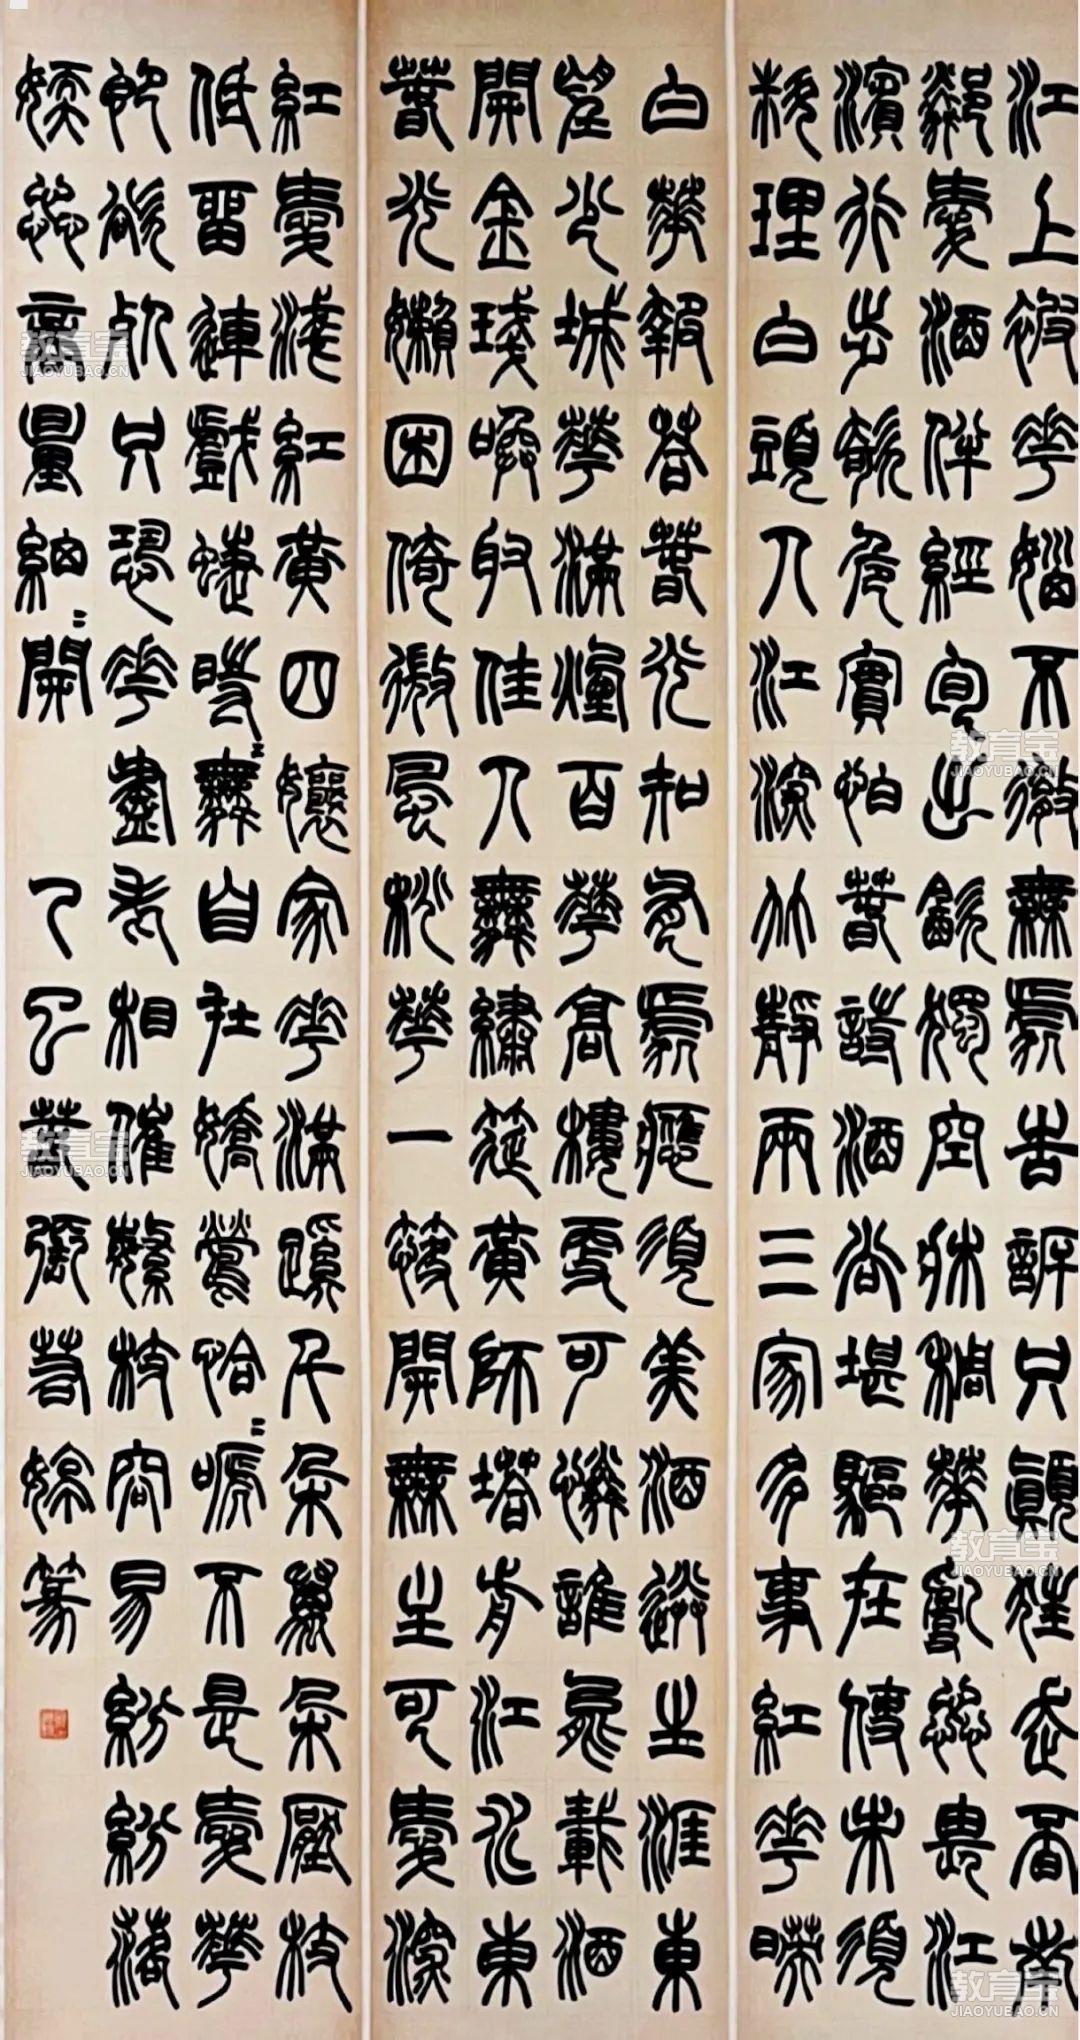 江上被花惱不徹無處告訴只顛狂走覓南
鄰愛酒伴經旬出飲獨空牀稠華亂蕊畏江
濱行步欹危實怕春詩酒尚堪驅在使未須
料理白頭人江深竹靜兩三家多事紅花映
白華報答春光知有處應須美酒送生涯東
望少城華滿煙百華高樓更可憐誰能載酒
開金盞喚取佳人舞繡筵黃師塔前江水東
春光懶困倚微風桃華一簇開無主可愛深
紅愛淺紅黃四孃家花滿蹊千朵萬朵壓枝
低留連戲蜨時〻舞自在嬌鶯恰〻啼不是愛華
即欲死只恐花盡老相催繁枝容易紛紛落
嫩蕊商量細〻開 乙巳 篆
教育宝
JIAOYUBAO.CN
教育宝
JIAOYUBAO.CN
教育宝
JIAOYUBAO.CN
教育宝
JIAOYUBAO.CN
教育宝
JIAOYUBAO.CN